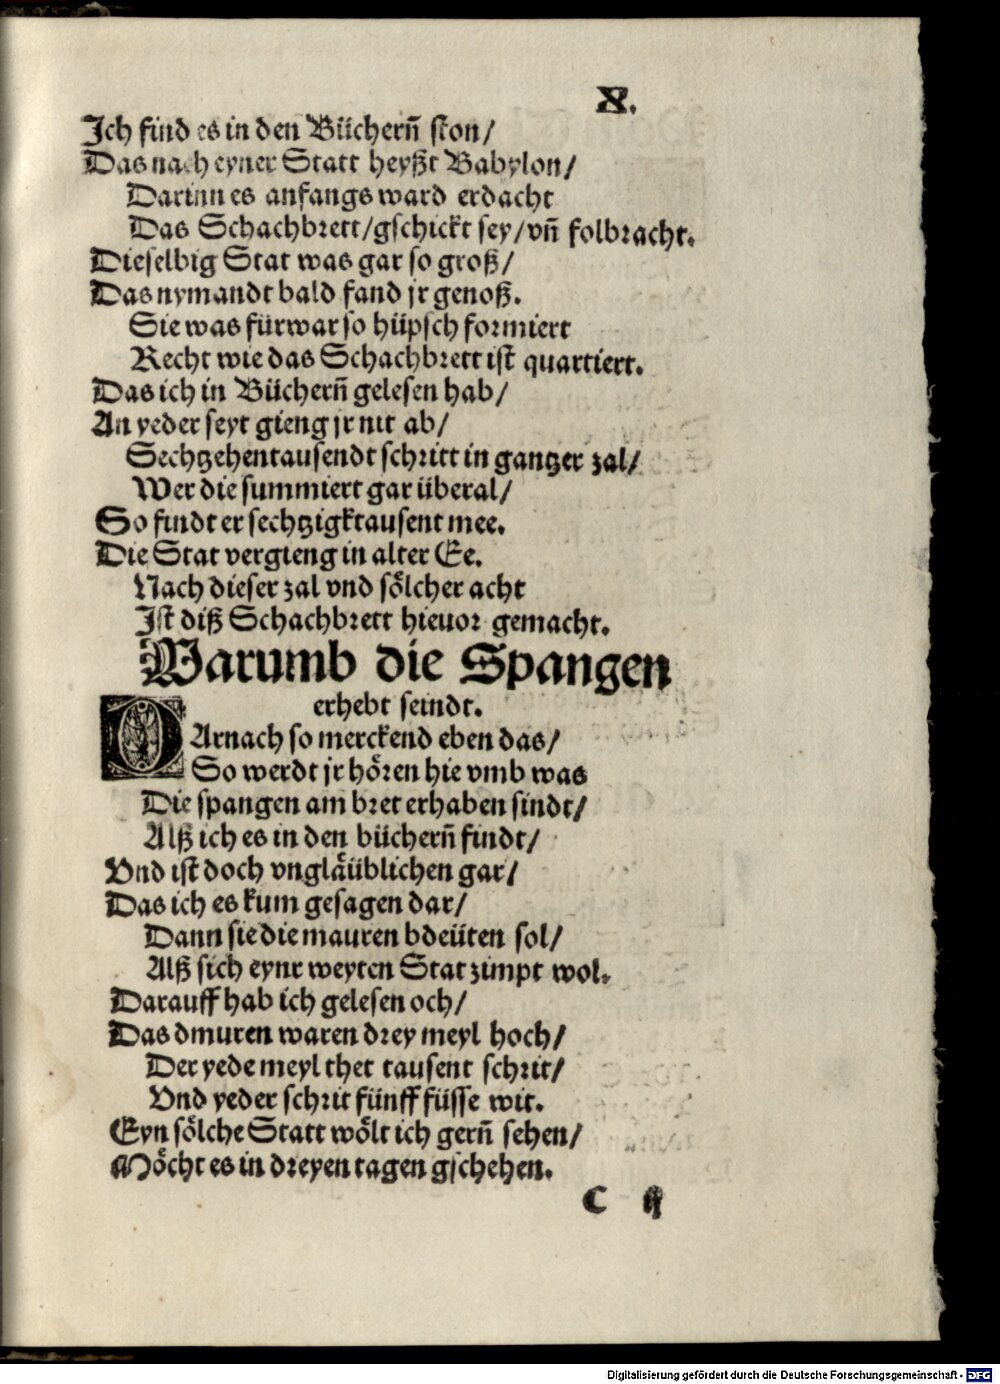 X.
Ich find es in den Büchern̄ ston/
Das nach eyner Statt heyßt Babylon/
Darinn es anfangs ward erdacht
Das Schachbrett/gschickt sey/vn̄ folbracht.
Dieselbig Stat was gar so groß/
Das nymandt bald fand jr genoß.
Sie was fürwar so hüpsch formiert
Recht wie das Schachbrett ist quartiert.
Das ich in Büchern̄ gelesen hab/
An yeder seyt gieng jr nit ab/
Sechtzehentausendt schritt in gantzer zal/
Wer die summiert gar überal/
So findt er sechtzigktausent mee.
Die Stat vergieng in alter Ee.
Nach dieser zal vnd soͤlcher acht
Ist diß Schachbrett hieuor gemacht.
Warumb die Spangen
erhebt seindt.
DArnach so merckend eben das/
So werdt jr hoͤren hie vmb was
Die spangen am bret erhaben sindt/
Alß ich es in den büchern̄ findt/
Vnd ist doch vnglaͤüblichen gar/
Das ich es kum gesagen dar/
Dann sie die mauren bdeüten sol/
Alß sich eynr weyten Stat zimpt wol.
Darauff hab ich gelesen och/
Das dmuren waren drey meyl hoch/
Der yede meyl thet tausent schrit/
Vnd yeder schrit fünff füsse wit.
Eyn soͤlche Statt woͤlt ich gern̄ sehen/
Moͤcht es in dreyen tagen gschehen.
C ij
Digitalisierung gefördert durch die Deutsche Forschungsgemeinschaft - DFG